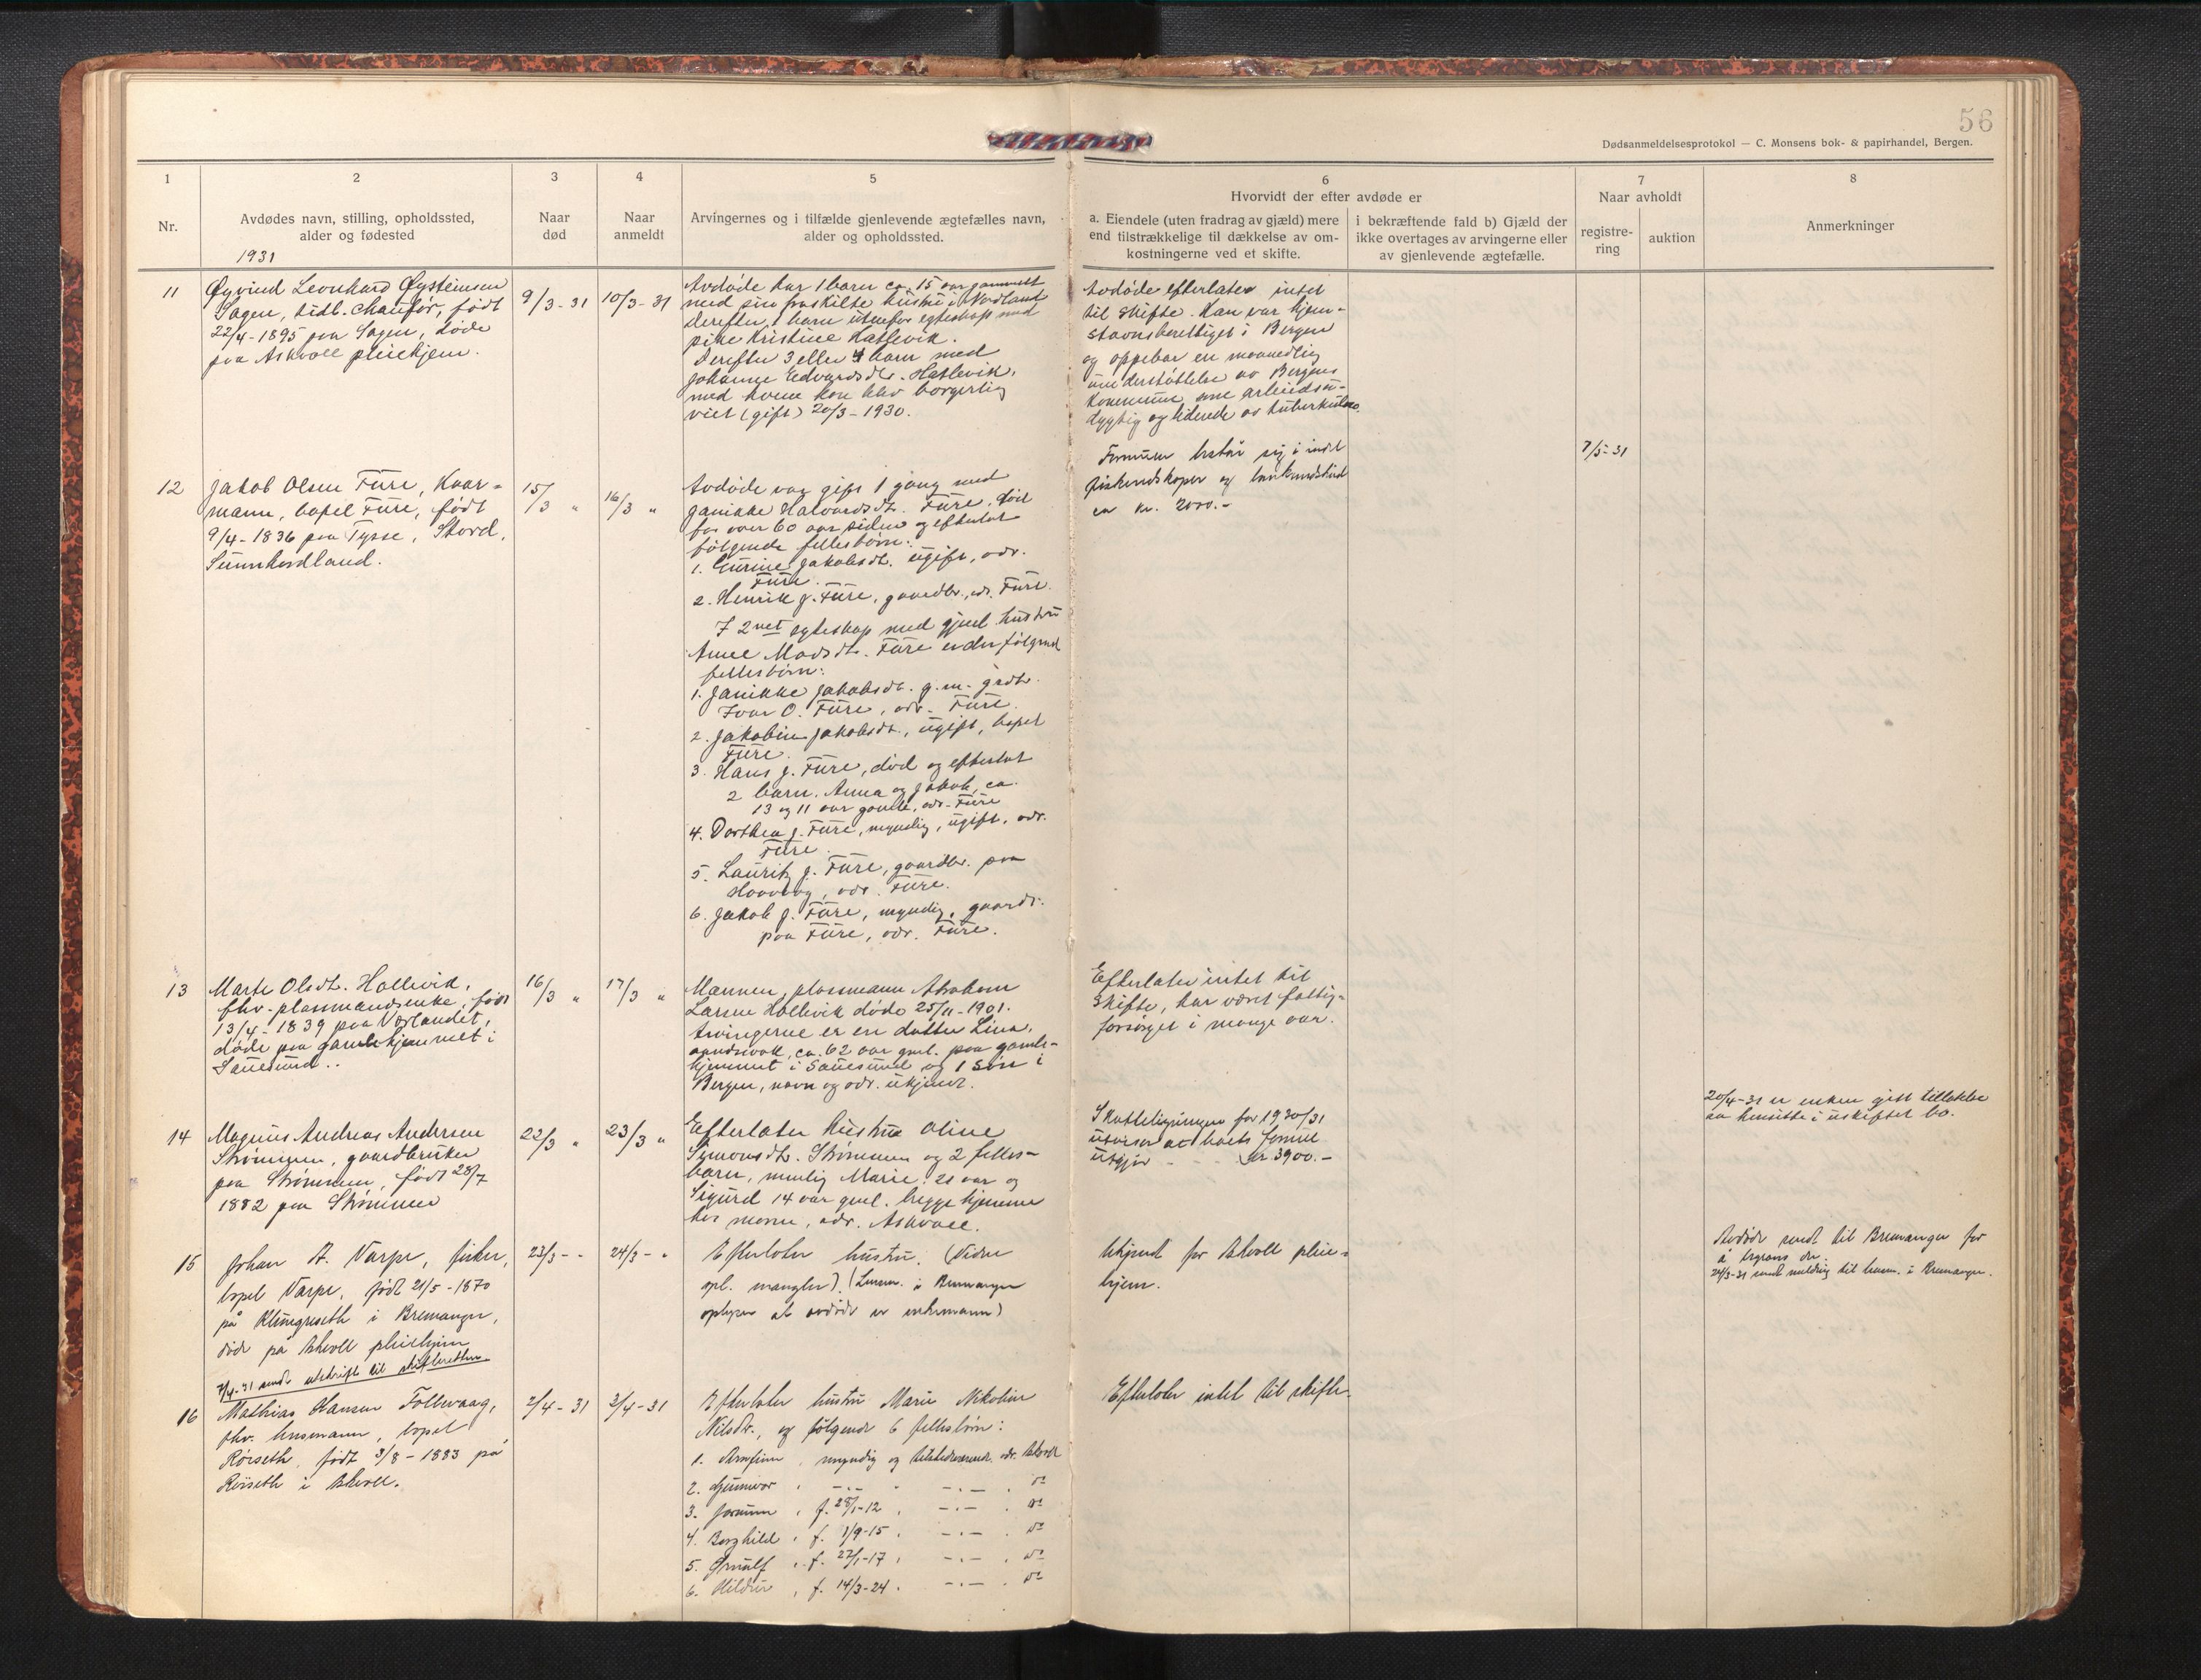 56
Dødsanmeldelsesprotokol — C. Monsens bok- & papirhandel, Bergen.
1
Nr.
2
Avdødes navn, stilling, opholdssted,
alder og fødested
1931
3
Naar
død
4
Naar
anmeldt
5
Arvingernes og i tilfælde gjenlevende ægtefælles navn,
alder og opholdssted.
6
Hvorvidt der efter avdøde er
a. Eiendele (uten fradrag av gjæld) mere
end tilstrækkelige til dækkelse av om-
kostningerne ved et skifte.
i bekræftende fald b) Gjæld der
ikke overtages av arvingerne eller
av gjenlevende ægtefælle.
7
Naar avholdt
registre-
ring
auktion
8
Anmerkninger
11
Øyvind Leonhard Øysteinsen
Sagen, tidl. chaufør, født
22/4-1895 paa Sagen, døde
paa Askvoll pleiehjem.
9/3-31
10/3-31
Avdøde har 1 barn ca. 15 aar gammelt
med sin fraskilte hustru i Nordland
Derefter 1 barn utenfor egteskap med
pike Kristine Hatlevik.
Derefter 3 eller 4 barn med
Johanne Edvardsdtr. Hatlevik,
med hvem han blev borgerlig
viet (gift) 20/3-1930.
Avdøde efterlater intet
til skifte. Han var hjem-
stavnsberettiget i Bergen
og oppebar en maanedlig
understøttelse av Bergens
kommune som arbeidsu-
dygtig og lidende av tuberkulose.
12
Jakob Olsen Fure, Kaar-
mann, bopel Fure, født
9/4-1836 paa Tysse, Stord,
Sunnhordland.
15/3 "
16/3 "
Avdøde var gift 1 gang med
Janikke Halvardsdt. Fure, død
for over 60 aar siden og efterlot
følgende fellesbørn:
1. Gurine Jakobsdt. ugift, adr.
Fure.
2. Henrik J. Fure, gaardbr., adr. Fure.
I 2net egteskap med gjenl. hustru
Anne Madsdt. Fure er der følgende
fellesbørn:
1. Janikke Jakobsdt. g.m. grdbr.
Ivar O. Fure, adr. Fure.
2. Jakobine Jakobsdt., ugift, bopel
Fure.
3. Hans J. Fure, død og efterlot
2 barn. Anna og Jakob, ca.
13 og 11 aar gamle, adr. Fure
4. Dorthea J. Fure, myndig, ugift, adr.
Fure.
5. Lauritz J. Fure, gaardbr. paa
adr. Fure.
6. Jakob J. Fure, myndig, gaardbr.
paa Fure, adr. Fure.
Formuen består sig i
fiskeredskaper og bankinnskudd
ca kr. 2000.-
7/5-31
13
Marte Olsdt. Hollevik,
fhv. plassmandsenke, født
13/4-1839 paa Værlandet,
døde paa gamlehjemmet i
Sauesund..
16/3 "
17/3 "
Mannen, plassmann Abraham
Larsen Hollevik døde 25/11-1901.
Arvingerne er en datter Lina,
aandssvak, ca. 62 aar gml. paa gamle-
hjemmet i Sauesund og 1 søn i
Bergen, navn og adr. ukjent.
Efterlater intet til
skifte, har været fattig-
forsørget i mange aar.
14
Magnus Andreas Andersen
Strømmen, gaardbruker
paa Strømmen, født 28/7
1882 paa Strømmen
22/3 "
23/3 "
Efterlater hustru Oline
Simonsdt. Strømmen og 2 felles-
barn, nemlig Marie 21 aar og
Sigurd 14 aar gml. begge hjemme
hos moren, adr. Askvoll.
Skatteligningen for 1930/31
utviser at boets formue
utgjør - - - kr 3900.-
20/4-31 er enken gitt tillatelse
aa hensitte i uskiftet bo.
15
Johan A. Varpe, fisker,
bopel Varpe, født 21/5-1870
på i Bremanger,
døde på Askvoll pleiehjem
7/4-31 sendt utskrift til skifteretten
23/3- "
24/3- "
Efterlater hustru. (Videre
opl. mangler). (Lensm. i Bremanger
oplyser at avdøde er enkemann)
Ukjent for Askvoll pleie-
hjem.
Avdøde sendt til Bremanger for
å begraves der.
24/3-31 sendt melding til lensm. i Bremanger.
16
Mathias Hansen Follevaag,
fhv. husmann, bopel
Røiseth, født 3/8-1883 på
Røiseth i Askvoll.
2/4-31
2/4-31
Efterlater hustru Marie Nikoline
Nilsdtr., og følgende 6 fellesbørn:
1. Arnfinn, myndig og tilstedeværende adr. Askvoll
2. Gunnvor, -.- " -.- . do
3. Jorunn, f. 28/1-12, -.- . do
4. Borghild, f. 1/9-15, -.- . do
5. Ørnulf, f. 22/1-17, -.- . do
6. Hildur, f. 14/3-24. -.- . do
Efterlater intet til skifte.